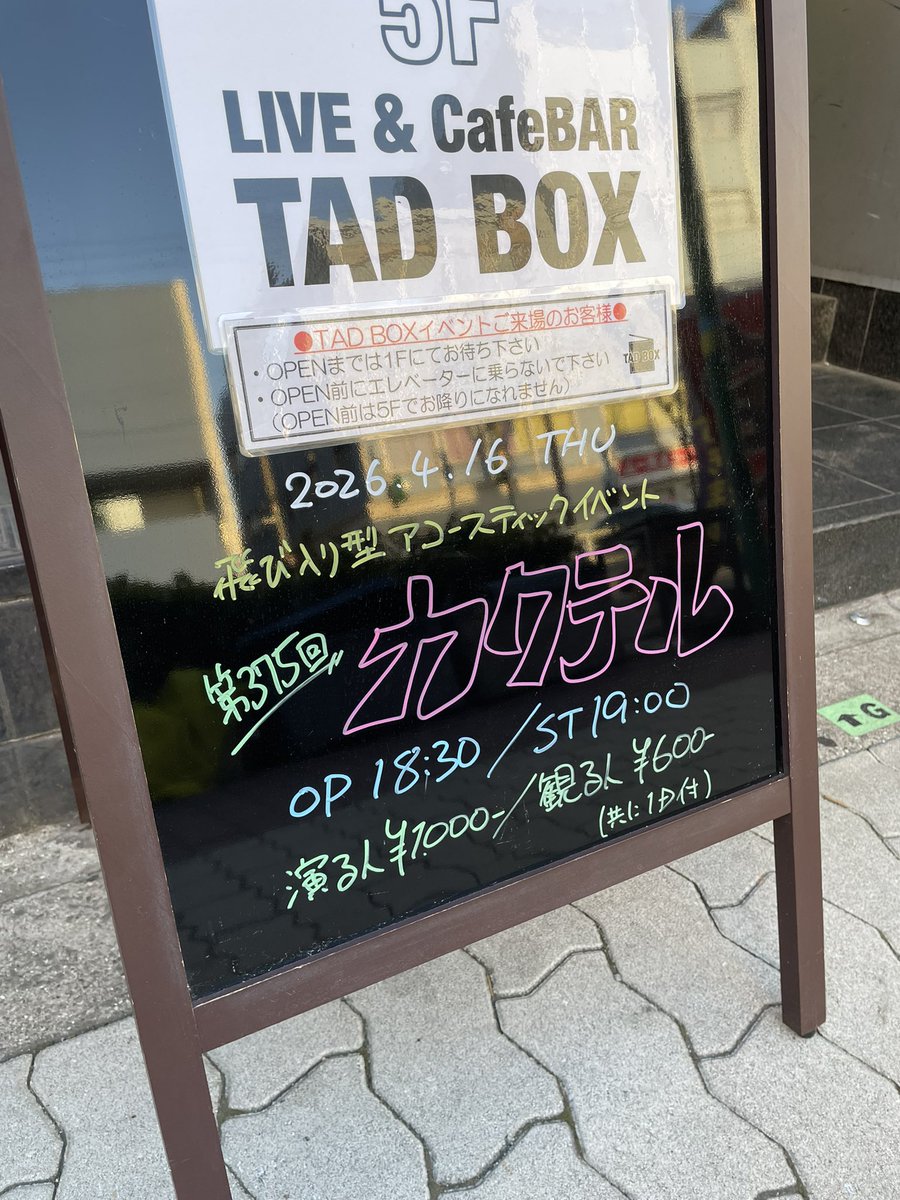 5F
LIVE & CafeBAR
TAD BOX
●TAD BOXイベントご来場のお客様●
・OPENまでは1Fにてお待ち下さい
・OPEN前にエレベーターに乗らないで下さい
(OPEN前は5Fでお降りになれません)
TAD BOX
2026.4.16 THU
飛び入り型 アコースティックイベント
第375回 カクテル
OP 18:30 / ST 19:00
演る人 ¥1,000- / 観る人 ¥600-
(共に1D付)
↑G